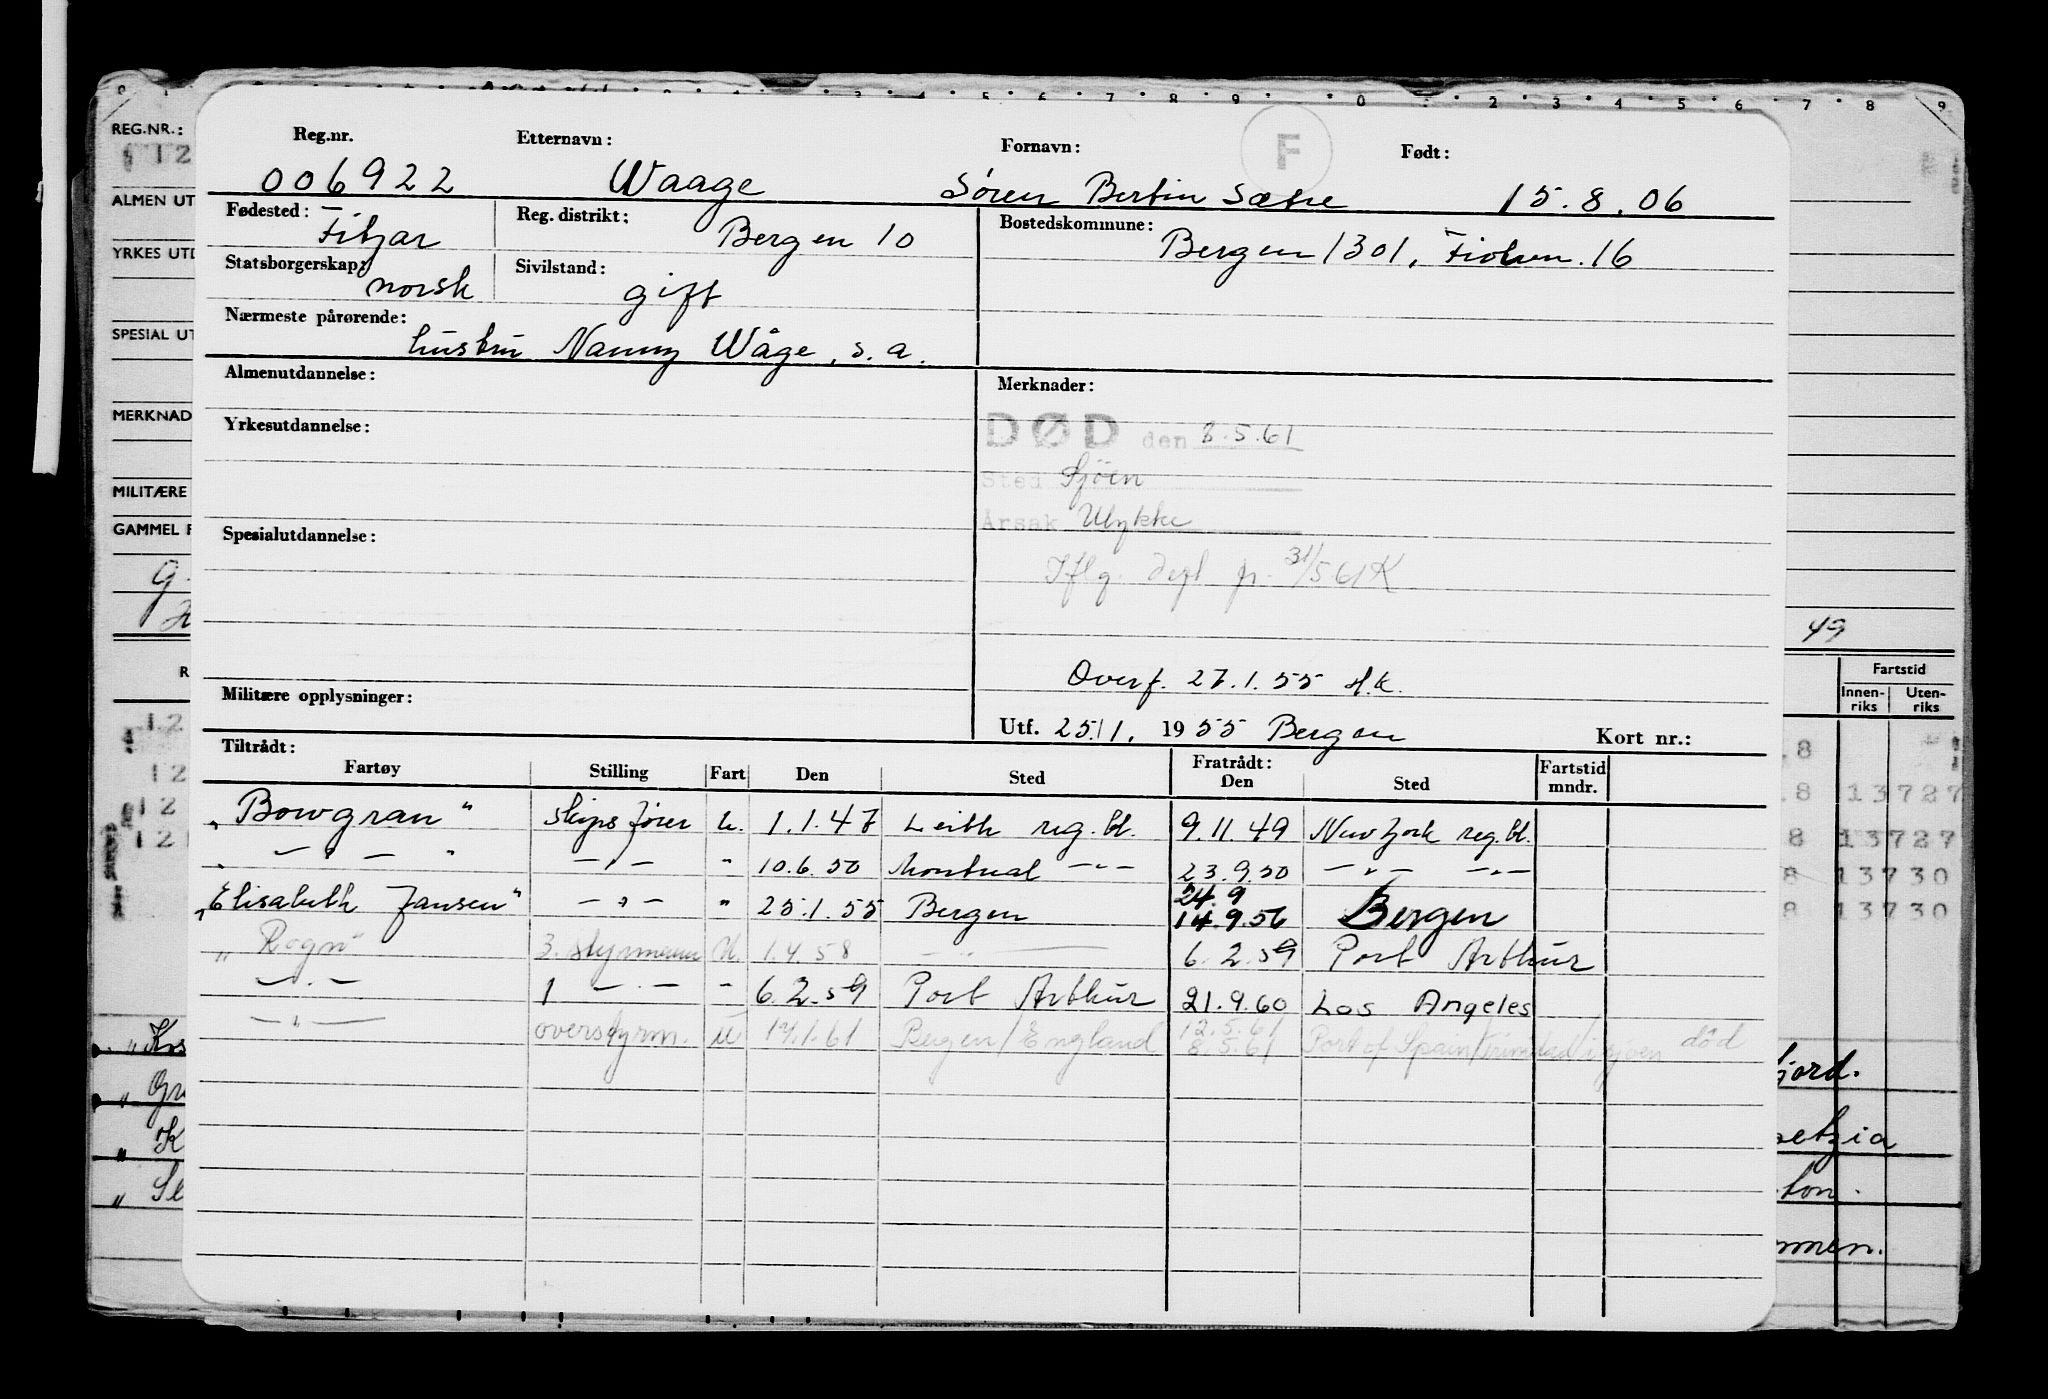 REG.NR.:
ALMEN UT
YRKES UTD
SPESIAL UT
MERKNAD
MILITÆRE
GAMMEL F
Reg.nr. Etternavn: Fornavn: F Født:
006922 Waage Søren Bertin Sætre 15.8.06
Fødested: Fitjar Reg. distrikt: Bergen 10 Bostedskommune: Bergen 1301, 16
Statsborgerskap: norsk Sivilstand: gift
Nærmeste pårørende: hustru Nanny Wåge, s.a.
Almenutdannelse: Merknader:
DØD den 8.5.61
Yrkesutdannelse:
Sted Sjöen
Årsak Ulykke
Spesialutdannelse:
Iflg. degl p. 31/5 61 K
49
Overf. 27.1.55 H.K.
Militære opplysninger:
Utf. 25/1. 1955 Bergen Kort nr.:
Tiltrådt: Fratrådt:
Fartøy Stilling Fart Den Sted Den Sted Fartstid mndr.
„Bowgran" skipsfører u. 1.1.47 Leith reg.bl. 9.11.49 New York reg.bl.
„ — " — " — " — " 10.6.50 Montreal — " — 23.9.50 — " — — " —
24.9
„Elisabeth Jansen" — " — " 25.1.55 Bergen 14.9.56 Bergen
„Rogn" 3. styrmann u. 1.4.58 — " — 6.2.59 Port Arthur
— " — 1 — " — " 6.2.59 Port Arthur 21.9.60 Los Angeles
— " — overstyrm. u 14.1.61 Bergen/England 12.5.61
8.5.61 Port of Spain/Trinidad i sjøen död
Fartstid
Innen-riks Uten-riks
.8
.8 13727
8 13727
8 13730
8 13730
fjord.
petzia
ton.
mmen.